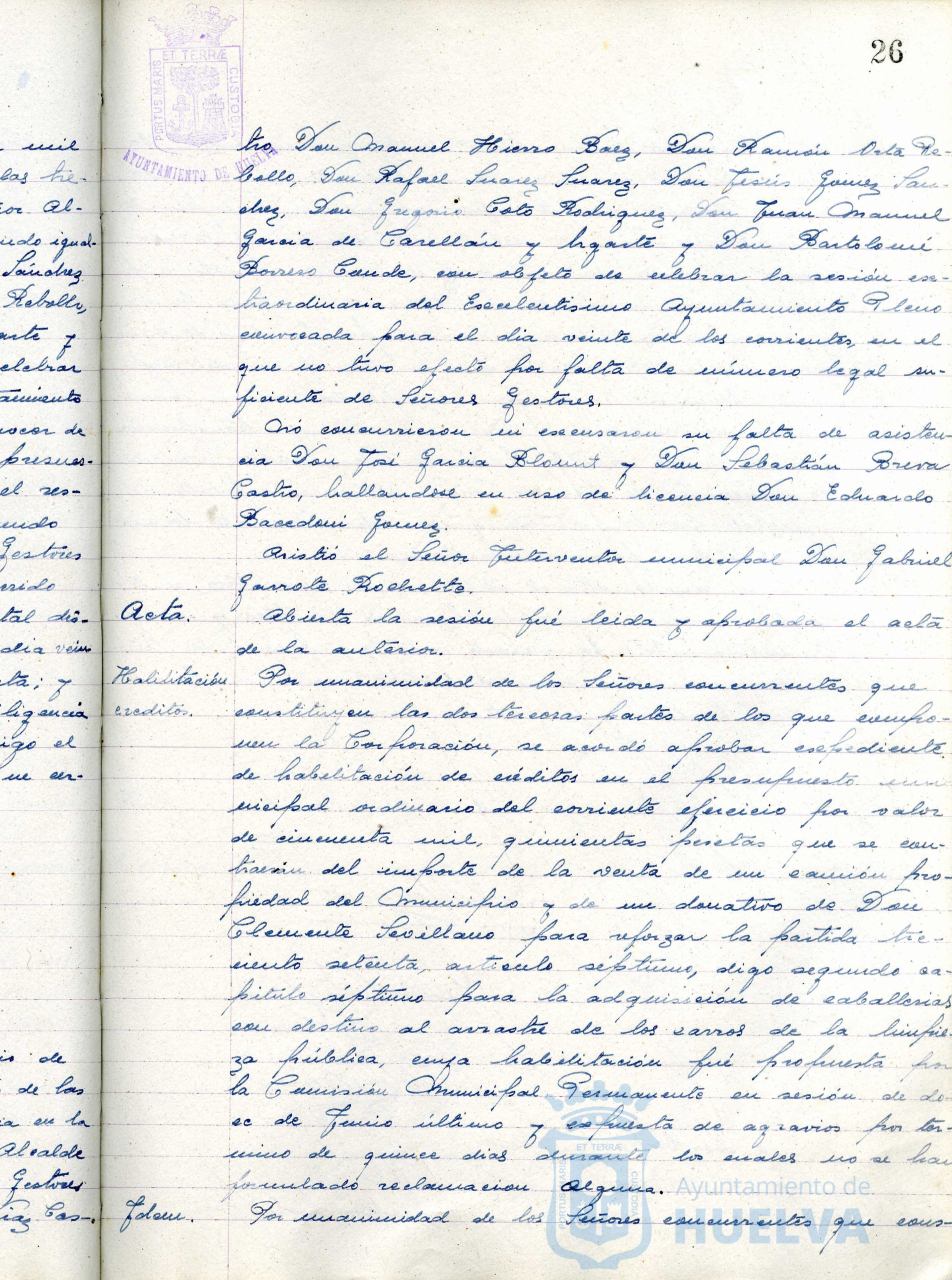 26
PORTUS MARIS ET TERRÆ CUSTODIA
AYUNTAMIENTO DE HUELVA
tro, Don Manuel Hierro Baez, Don Ramón Orta Re-
bollo, Don Rafael Suarez Suarez, Don Jesús Gomez San-
chez, Don Gregorio Coto Rodriguez, Don Juan Manuel
Garcia de Carellán y Ugarte y Don Bartolomé
Borrero Conde, con objeto de celebrar la sesión ex-
traordinaria del Excelentisimo Ayuntamiento Pleno
convocada para el dia veinte de los corrientes, en el
que no tuvo efecto por falta de número legal su-
ficiente de Señores Gestores.
Nó concurrieron ni excusaron su falta de asisten-
cia Don José Garcia Blount y Don Sebastián Breva
Castro, hallandose en uso de licencia Don Eduardo
Bacedoni Gomez.
Asistió el Señor Interventor municipal Don Gabriel
Garrote Rochette.
Acta. Abierta la sesión fué leida y aprobada el acta
de la anterior.
Habilitación Por unanimidad de los Señores concurrentes que
creditos. constituyen las dos terceras partes de los que compo-
nen la Corporación, se acordó aprobar expediente
de habilitación de créditos en el presupuesto mu-
nicipal ordinario del corriente ejercicio por valor
de cincuenta mil, quinientas pesetas que se con-
traerán del importe de la venta de un camión pro-
piedad del Municipio y de un donativo de Don
Clemente Sevillano para reforzar la partida tre-
ciento setenta, articulo séptimo, digo segundo ca-
pitulo séptimo para la adquisición de caballerias
con destino al arrastre de los carros de la limpie-
za pública, cuya habilitación fué propuesta por
la Comisión Municipal Permanente en sesión de do-
ce de Junio último y expuesta de agravios por tér-
mino de quince dias durante los cuales no se han
formulado reclamacion alguna.
Idem. Por unanimidad de los Señores concurrentes que cons-
n mil
las tre-
tor Al-
ndo igual-
Sánchez
Rebollo,
arte y
celebrar
tamiento
nocer de
presues-
el res-
endo
Gestores
rrido
tal dis-
dia vein
ta; y
ligencia
igo el
ue cer-
io de
de las
ia en la
Alcalde
Gestores
iaz Cas-
ET TERRÆ
Ayuntamiento de
HUELVA